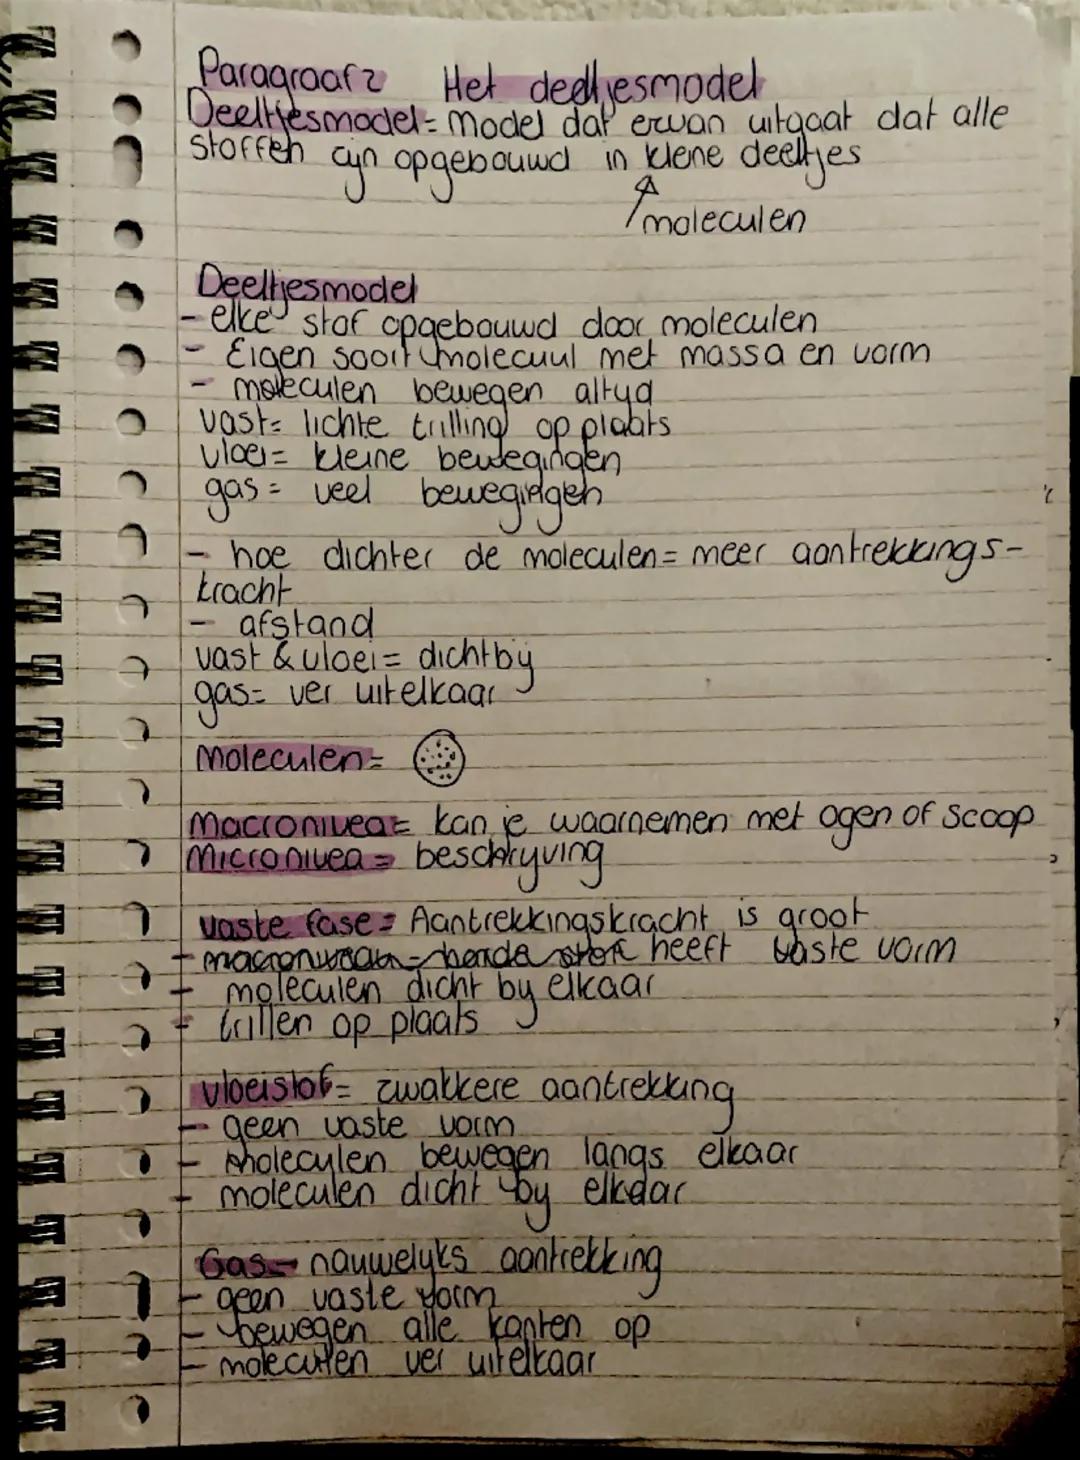 Paragraaf 2 Het deeltjesmodel
Deeltjesmodel = Model dat ervan uitgaat dat alle
stoffen zijn opgebouwd in klene deeltjes
moleculen
Deeltjesmodel
- elke stof opgebouwd door moleculen
- Eigen soort molecuul met massa en vorm
- moleculen bewegen altijd
vast= lichte trilling op plaats
vloei= kleine bewegingen
gas= veel bewegingen
- hoe dichter de moleculen= meer aantrekkings-
kracht
- afstand
vast & vloei= dichtbij
gas= ver uitelkaar
Moleculen=
Macronivea= kan je waarnemen met ogen of scoop
Micronivea= beschrijving
vaste fase= Aantrekkingskracht is groot
- heeft vaste vorm
- moleculen dicht bij elkaar
- trillen op plaats
vloeistof= zwakkere aantrekking
- geen vaste vorm
- moleculen bewegen langs elkaar
- moleculen dicht bij elkaar
Gas- nauwelijks aantrekking
- geen vaste vorm
- bewegen alle kanten op
- moleculen ver uitelkaar